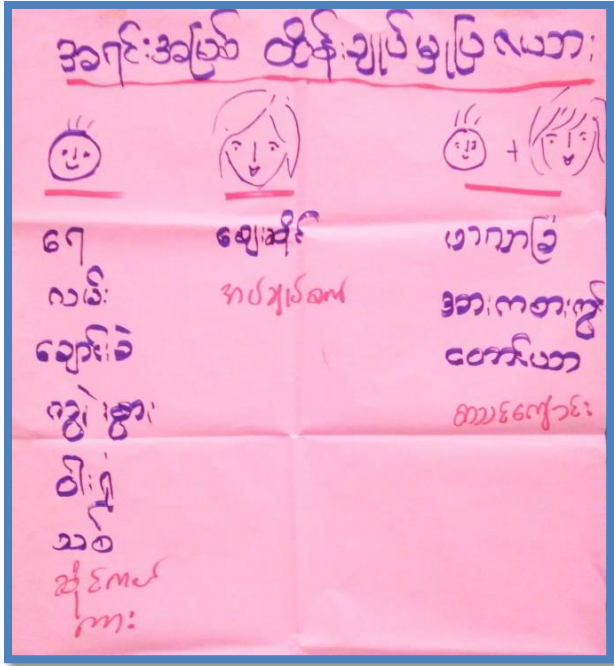 အရင်းအမြစ် ထိန်းချုပ်မှုပြ ဇယား
ရေ
လမ်း
ကျွဲ၊နွား
ဝါးရုံ
သစ်
ဆိုင်ကယ်
ကား
ဈေးဆိုင်
အပ်ချုပ်စက်
ဖာလာခြံ
အားကစားကွင်း
တောင်ယာ
စာသင်ကျောင်း